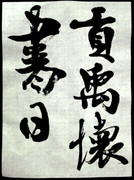 貢禹懷
書日